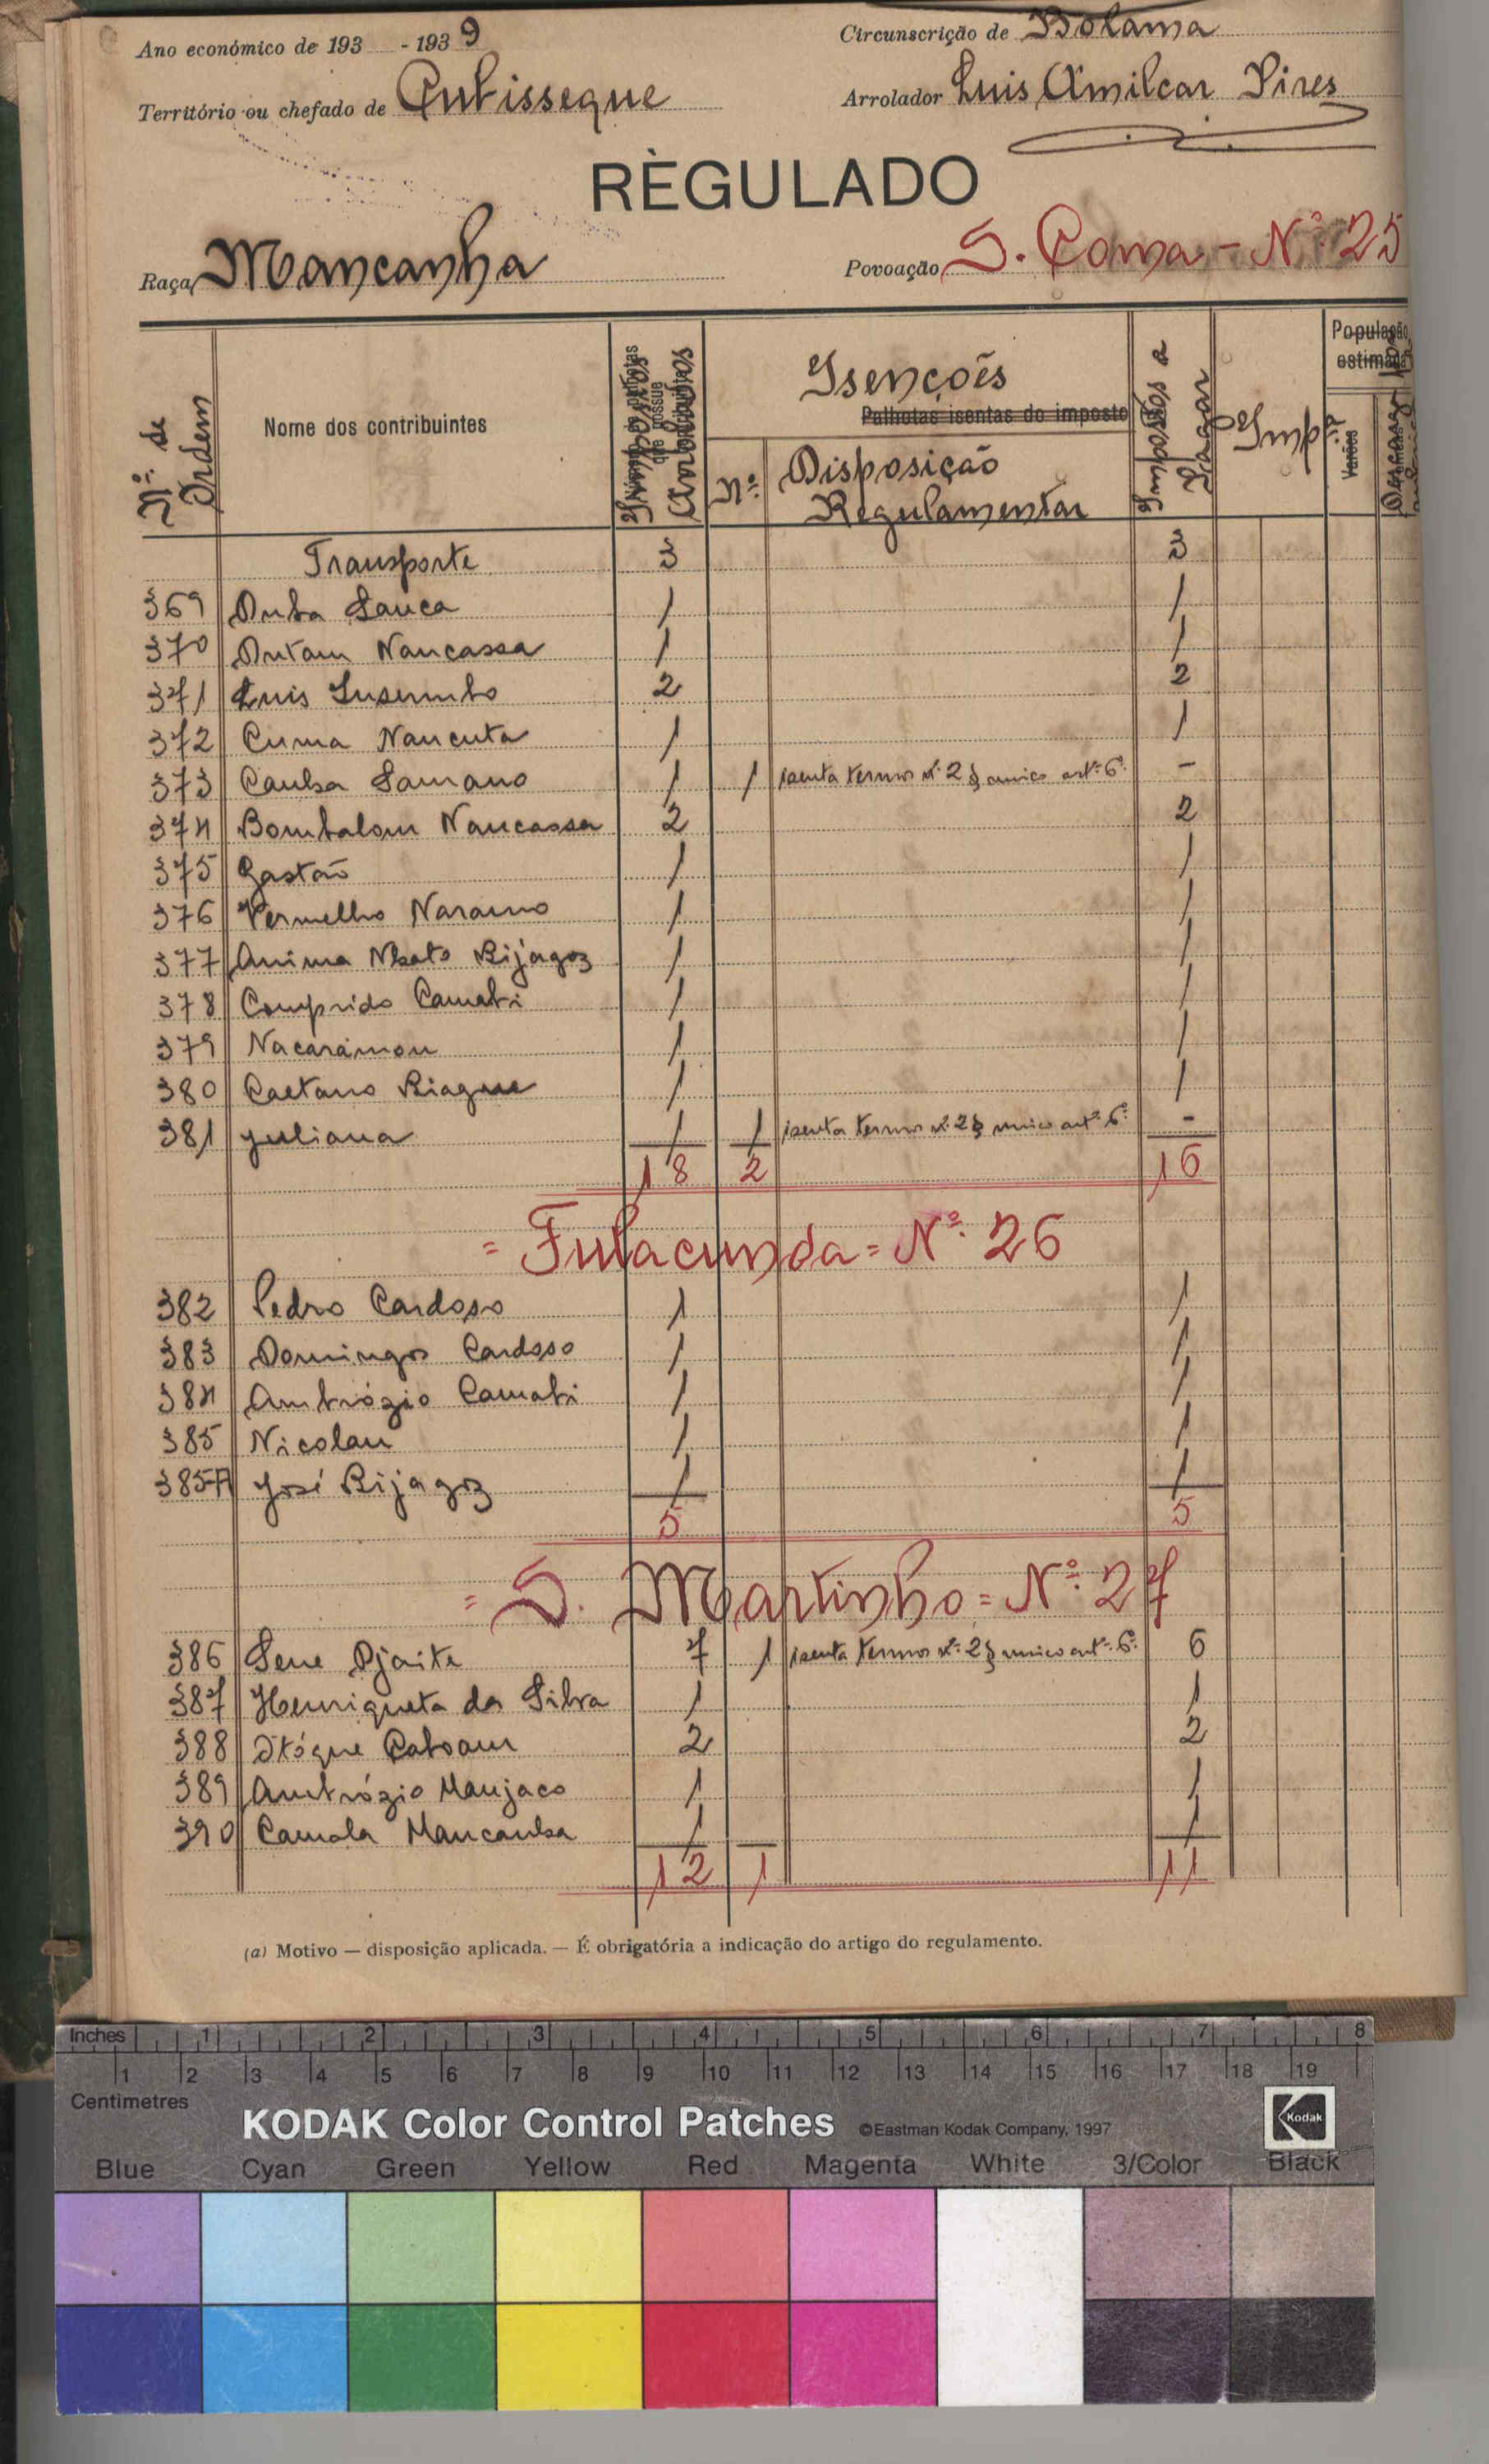 Ano económico de 193 - 1939
Circunscrição de Bolama
Território ou chefado de Antissegue
Arrolador Luis Amilcar Pires
RÈGULADO
Raça Mancanha
Povoação S. Coma - Nº 25
Nº de Ordem
Nome dos contribuintes
Impostos
Isenções
Palhotas isentas do imposto
Nº
Disposição Regulamentar
Impostos a Pagar
Imp.
População estimada
Varões
Transporte 3 3
369 Duba Sanca 1 1
370 Dutam Nancassa 1 1
371 Luis 2 2
372 Cuma Nancuta 1 1
373 Canha Samano 1 1 isenta termos nº 2 § unico artº 6º -
374 Bombalom Nancassa 2 2
375 Gastão 1 1
376 Vermelho Naramo 1 1
377 Anima Bijagoz 1 1
378 Comprido Camati 1 1
379 Nacaramou 1 1
380 Caetano Biague 1 1
381 Juliana 1 1 isenta termos nº 2 § unico artº 6º -
18 2 16
= Fulacunda = Nº 26
382 Pedro Cardoso 1 1
383 Domingos Cardoso 1 1
384 Ambrózio Camati 1 1
385 Nicolau 1 1
385-A José Bijagoz 1 1
5 5
= S. Martinho = Nº 27
386 Sene Djaite 7 1 isenta termos nº 2 § unico artº 6º 6
387 Henriqueta da Silva 1 1
388 2 2
389 Ambrózio Manjaco 1 1
390 Camala Mancanha 1 1
12 1 11
(a) Motivo — disposição aplicada. — É obrigatória a indicação do artigo do regulamento.
Inches 1 2 3 4 5 6 7 8
1 2 3 4 5 6 7 8 9 10 11 12 13 14 15 16 17 18 19
Centimetres
KODAK Color Control Patches ©Eastman Kodak Company, 1997 Kodak
Blue Cyan Green Yellow Red Magenta White 3/Color Black